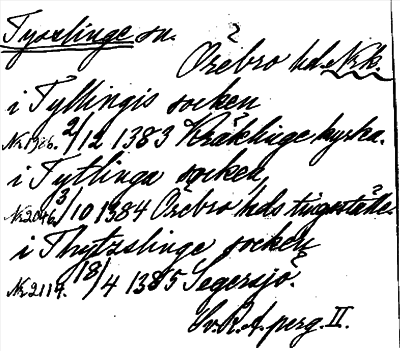 Tysslinge sn.
Örebro hd. Nrk.
i Tyllingis socken
Nr 1986. 2/12 1383 Kräklinge kyrka.
i Tytlinga socken,
Nr 2046. 3/10 1384 Örebro hds tingställe.
i Thytzslinge socken
Nr 2119. 18/4 1385 Segersjö.
Sv. R. A. perg. II.